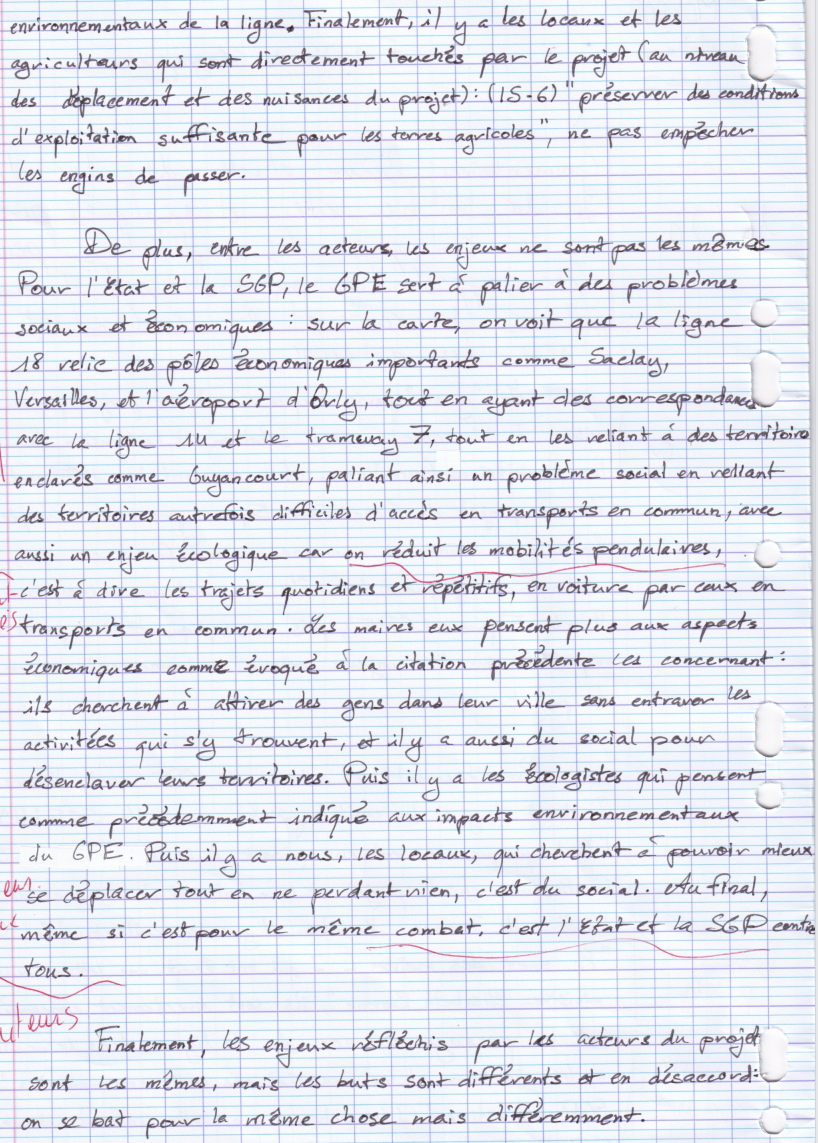 environnementaux de la ligne. Finalement, il y a les locaux et les
agriculteurs qui sont directement touchés par le projet (au niveau
des déplacement et des nuisances du projet): (15-6) "préserver des conditions
d'exploitation suffisante pour les terres agricoles", ne pas empêcher
les engins de passer.
De plus, entre les acteurs, les enjeux ne sont pas les mêmes
Pour l'état et la SGP, le GPE sert à palier à des problèmes
sociaux et économiques : sur la carte, on voit que la ligne
18 relie des pôles économiques importants comme Saclay,
Versailles, et l'aéroport d'Orly, tout en ayant des correspondances
avec la ligne 14 et le tramway 7, tout en les reliant à des territoire
enclavés comme Guyancourt, paliant ainsi un problème social en reliant
des territoires autrefois difficiles d'accès en transports en commun, avec
aussi un enjeu écologique car on réduit les mobilités pendulaires,
c'est à dire les trajets quotidiens et répétitifs, en voiture par ceux en
es transports en commun. Les maires eux pensent plus aux aspects
économiques comme évoqué à la citation précédente les concernant :
ils cherchent à attirer des gens dans leur ville sans entraver les
activitées qui s'y trouvent, et il y a aussi du social pour
désenclaver leurs territoires. Puis il y a les écologistes qui pensent
comme précédemment indiqué aux impacts environnementaux
du GPE. Puis il y a nous, les locaux, qui cherchent à pouvoir mieux
se déplacer tout en ne perdant rien, c'est du social. Au final,
même si c'est pour le même combat, c'est l'État et la SGP contre
tous.
teurs
Finalement, les enjeux réfléchis par les acteurs du projet
sont les mêmes, mais les buts sont différents et en désaccord:
on se bat pour la même chose mais différemment.